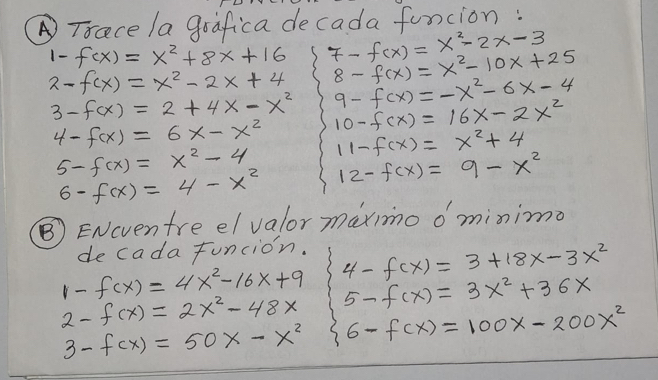 A) Trace la gráfica de cada función:
1- f(x) = x²+8x+16
2- f(x) = x² - 2x + 4
3- f(x) = 2 + 4x - x²
4- f(x) = 6x - x²
5- f(x) = x² - 4
6- f(x) = 4 - x²
7- f(x) = x²-2x-3
8- f(x) = x²-10x+25
9- f(x) = -x²-6x-4
10- f(x) = 16x-2x²
11- f(x) = x²+4
12- f(x) = 9-x²
B) Encuentre el valor máximo ó minimo
de cada Función.
1- f(x) = 4x²-16x+9
2- f(x) = 2x²-48x
3- f(x) = 50x - x²
4- f(x) = 3+18x-3x²
5- f(x) = 3x²+36x
6- f(x) = 100x-200x²